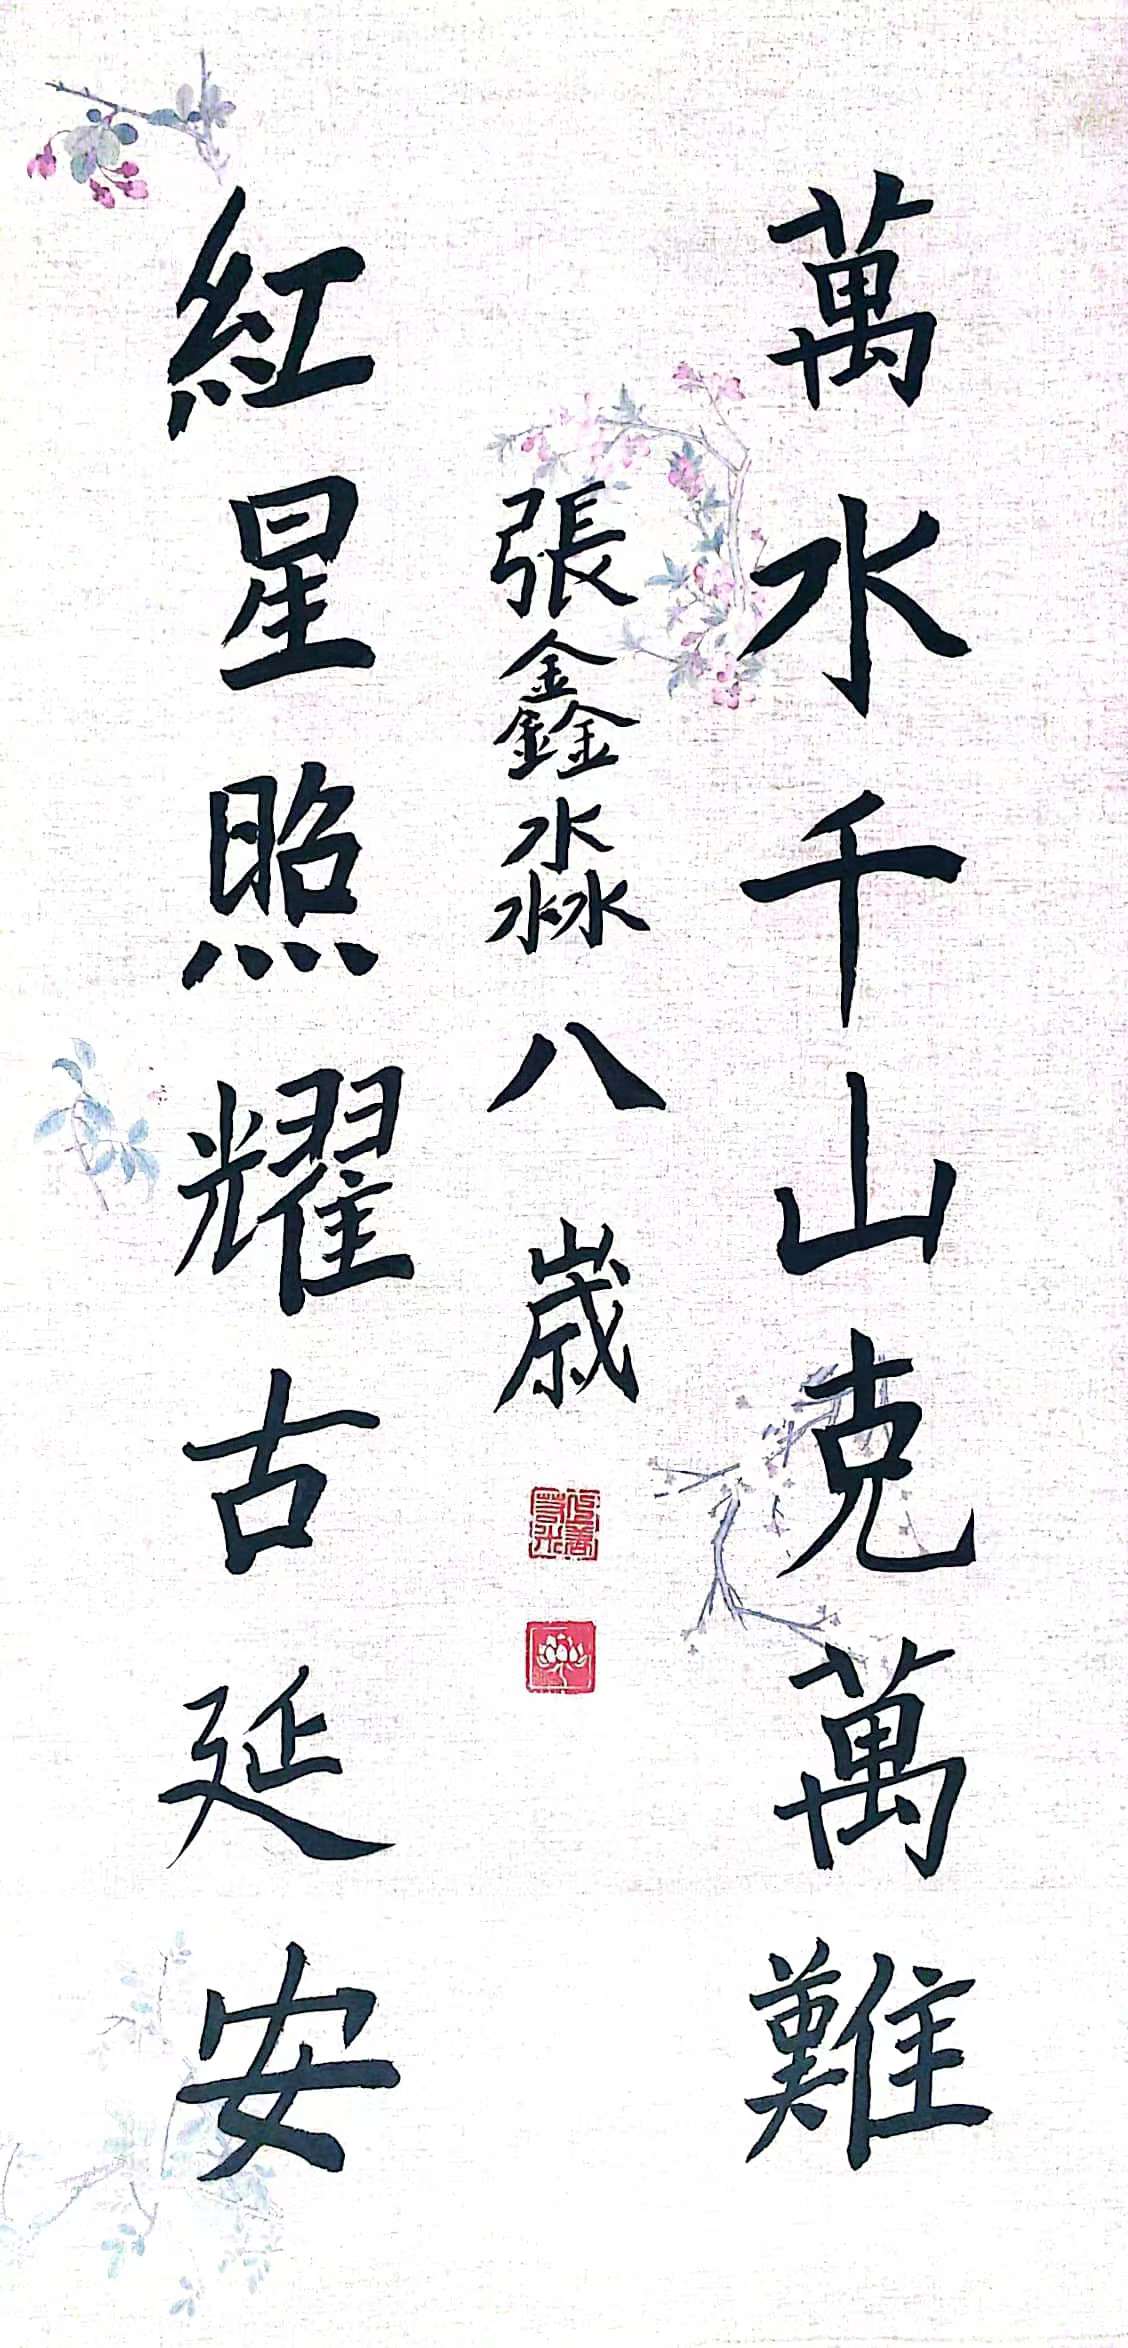 萬水千山克萬難
張鑫淼八歲
紅星照耀古延安